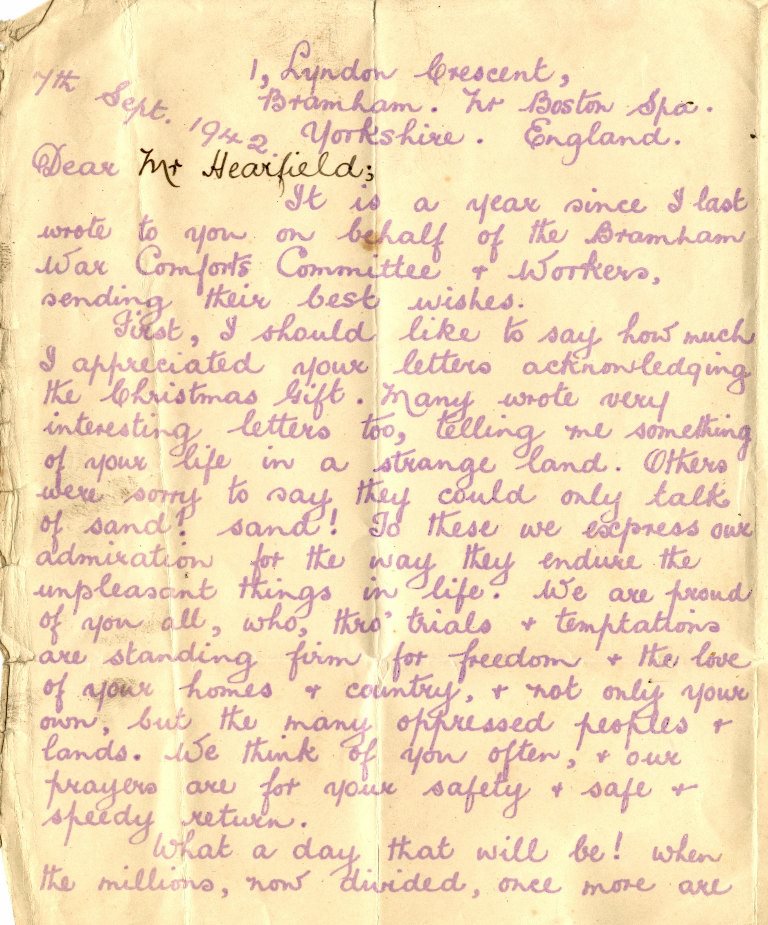 1, Lyndon Crescent,
7th Sept. 1942 Bramham. Nr Boston Spa.
Yorkshire. England.
Dear Mr Hearfield;
It is a year since I last
wrote to you on behalf of the Bramham
War Comforts Committee & Workers,
sending their best wishes.
First, I should like to say how much
I appreciated your letters acknowledging
the Christmas Gift. Many wrote very
interesting letters too, telling me something
of your life in a strange land. Others
were sorry to say they could only talk
of sand! sand! To these we express our
admiration for the way they endure the
unpleasant things in life. We are proud
of you all, who, thro' trials & temptations
are standing firm for freedom & the love
of your homes & country, & not only your
own, but the many oppressed peoples &
lands. We think of you often, & our
prayers are for your safety & safe &
speedy return.
What a day that will be! when
the millions, now divided, once more are